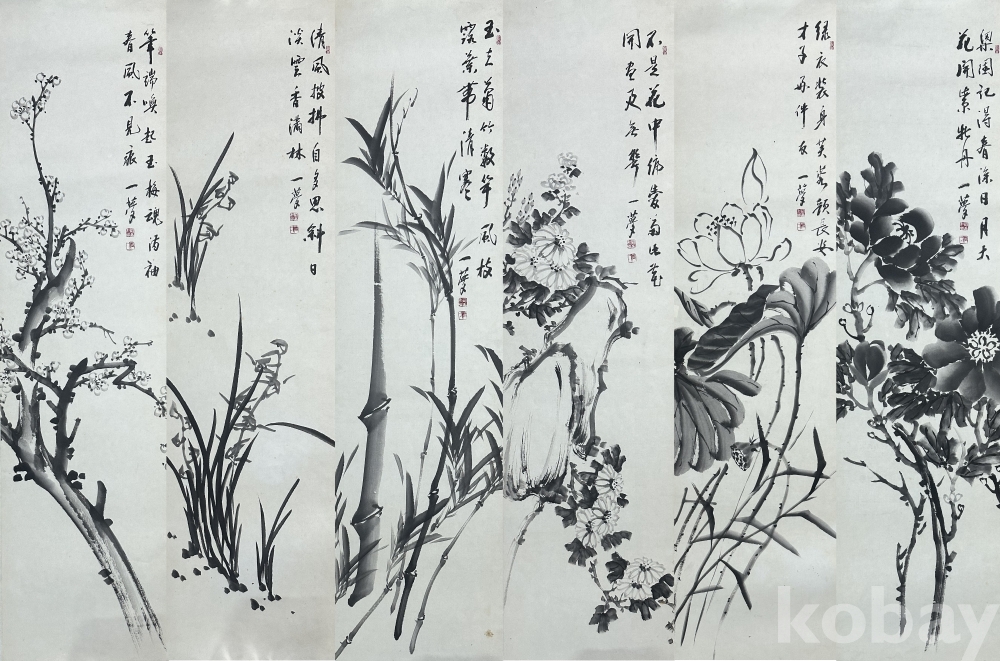 梁園記得春深日月大
花開紫牡丹 一夢
綠衣裝身芙蓉 長安
才子 伴友 一夢
不是花中偏愛菊此花
開盡更無華 一夢
玉立蕭竹數竿風枝
露葉帶清寒 一夢
清風披拂自多思斜日
淡雲香滿林 一夢
筆端喚起玉梅魂滿袖
春風不見痕 一夢
kobay